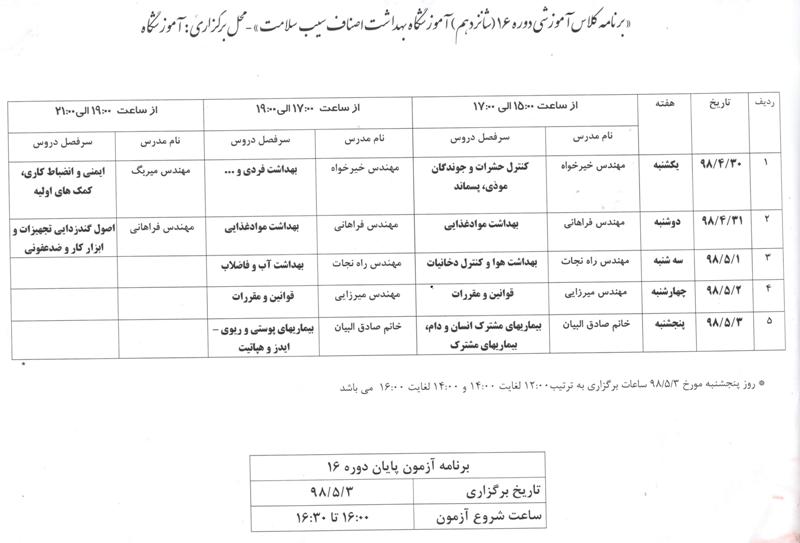 «برنامه کلاس آموزشی دوره ۱۶ (شانزدهم) آموزشگاه بهداشت اصناف سیب سلامت» - محل برگزاری: آموزشگاه
ردیف تاریخ هفته از ساعت ۱۵:۰۰ الی ۱۷:۰۰ از ساعت ۱۷:۰۰ الی ۱۹:۰۰ از ساعت ۱۹:۰۰ الی ۲۱:۰۰
نام مدرس سرفصل دروس نام مدرس سرفصل دروس نام مدرس سرفصل دروس
۱ ۹۸/۴/۳۰ یکشنبه مهندس خیرخواه کنترل حشرات و جوندگان مهندس خیرخواه بهداشت فردی و ... مهندس میربگ ایمنی و انضباط کاری،
موذی، پسماند کمک های اولیه
۲ ۹۸/۴/۳۱ دوشنبه مهندس فراهانی بهداشت موادغذایی مهندس فراهانی بهداشت موادغذایی مهندس فراهانی اصول گندزدایی تجهیزات و
ابزار کار و ضدعفونی
۳ ۹۸/۵/۱ سه شنبه مهندس راه نجات بهداشت هوا و کنترل دخانیات مهندس راه نجات بهداشت آب و فاضلاب
۴ ۹۸/۵/۲ چهارشنبه مهندس میرزایی قوانین و مقررات مهندس میرزایی قوانین و مقررات
۵ ۹۸/۵/۳ پنجشنبه خانم صادق البیان بیماریهای مشترک انسان و دام، خانم صادق البیان بیماریهای پوستی و ریوی –
بیماریهای مشترک ایدز و هپاتیت
* روز پنجشنبه مورخ ۹۸/۵/۳ ساعات برگزاری به ترتیب ۱۲:۰۰ لغایت ۱۴:۰۰ و ۱۴:۰۰ لغایت ۱۶:۰۰ می باشد
برنامه آزمون پایان دوره ۱۶
تاریخ برگزاری ۹۸/۵/۳
ساعت شروع آزمون ۱۶:۰۰ تا ۱۶:۳۰